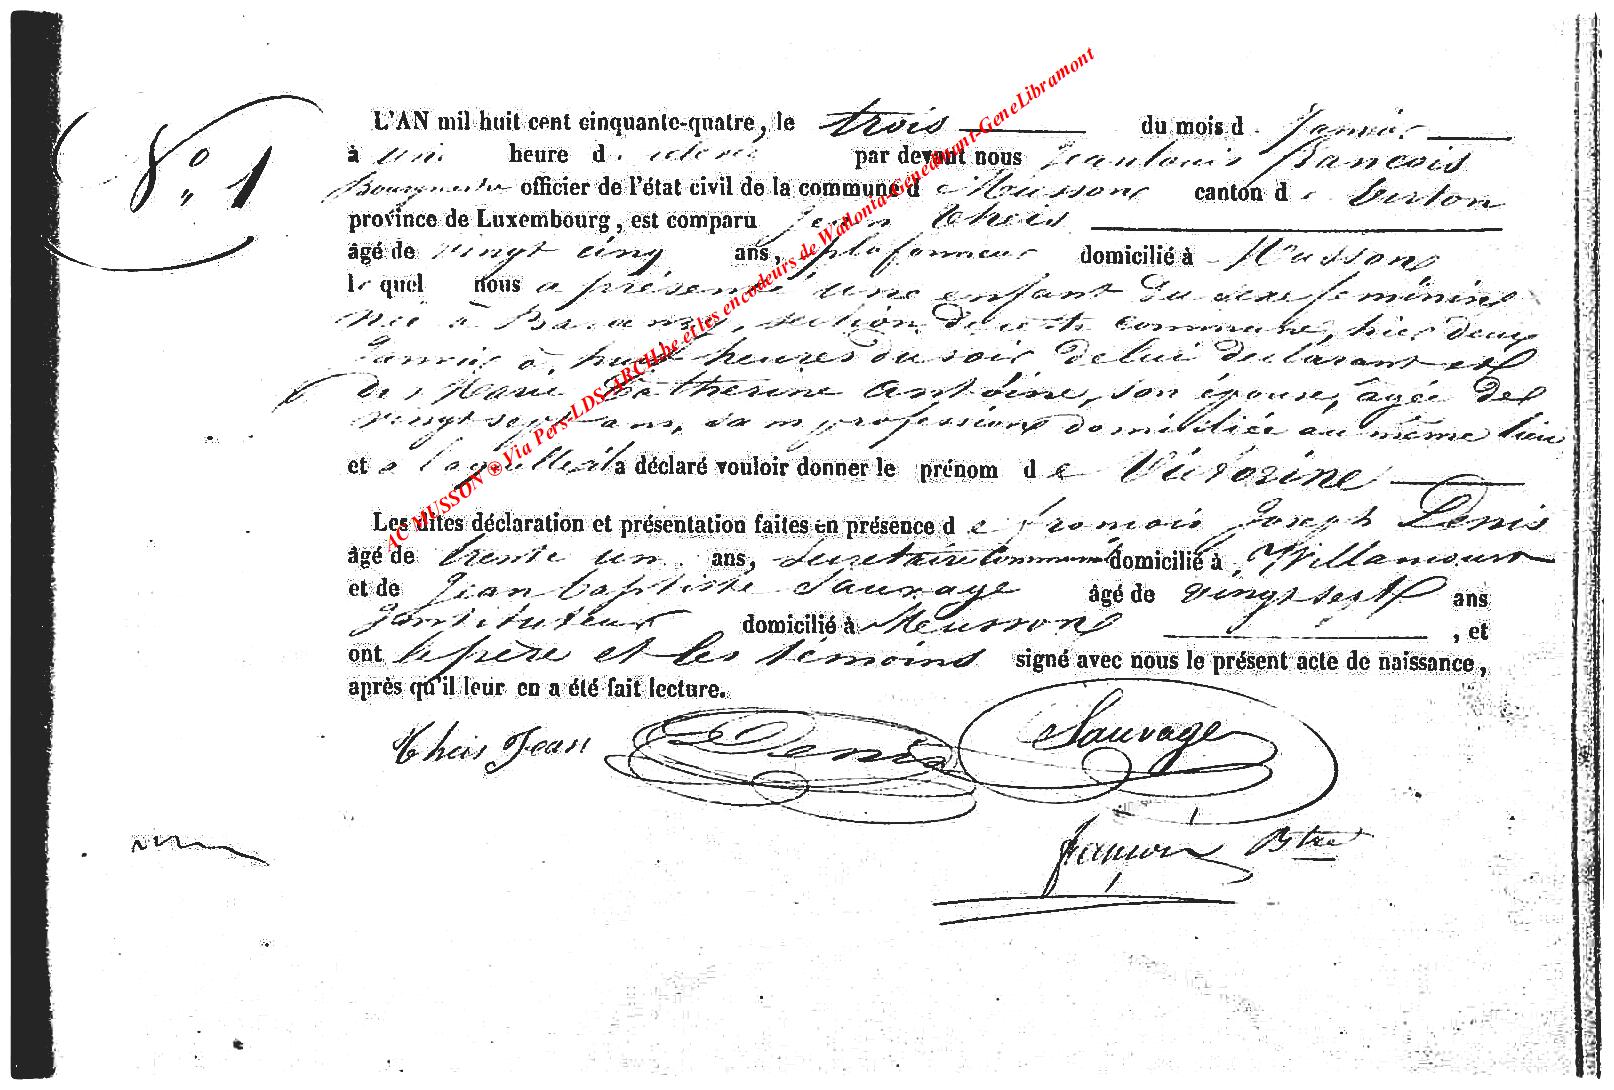 N° 1
L'AN mil huit cent cinquante-quatre, le trois du mois de Janvier
à une heure de relevée par devant nous Jean louis François
Bourgmestre officier de l'état civil de la commune de Musson canton de Virton
province de Luxembourg, est comparu Jean Theis
âgé de vingt cinq ans, plafonneur domicilié à Musson
lequel nous a présenté une enfant du sexe féminin
née à Baranzy, section de cette commune, hier deux
Janvier à huit heures du soir de lui déclarant et
de Marie Catherine Antoine, son épouse, agée de
vingt sept ans, sans profession domiciliée au même lieu
et a laquelle il a déclaré vouloir donner le prénom de Victorine
Les dites déclaration et présentation faites en présence de François Joseph Denis
âgé de trente un ans, secretaire Communal domicilié à Willancourt
et de Jean baptiste Sauvage âgé de vingt sept ans
Instituteur domicilié à Musson , et
ont le père et les témoins signé avec nous le présent acte de naissance,
après qu'il leur en a été fait lecture.
Theis Jean Denis Sauvage
François Btre
AC MUSSON ® Via Pers-LDS-ARCH.be et les encodeurs de Wallonia-Genedinant-GeneLibramont